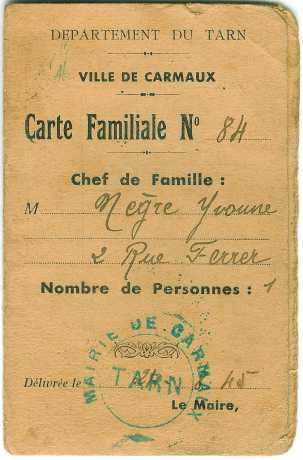 DEPARTEMENT DU TARN
VILLE DE CARMAUX
Carte Familiale N° 84
Chef de Famille :
M Nègre Yvonne
2 Rue Ferrer
Nombre de Personnes : 1
MAIRIE DE CARMAUX
TARN
Délivrée le 45
Le Maire,